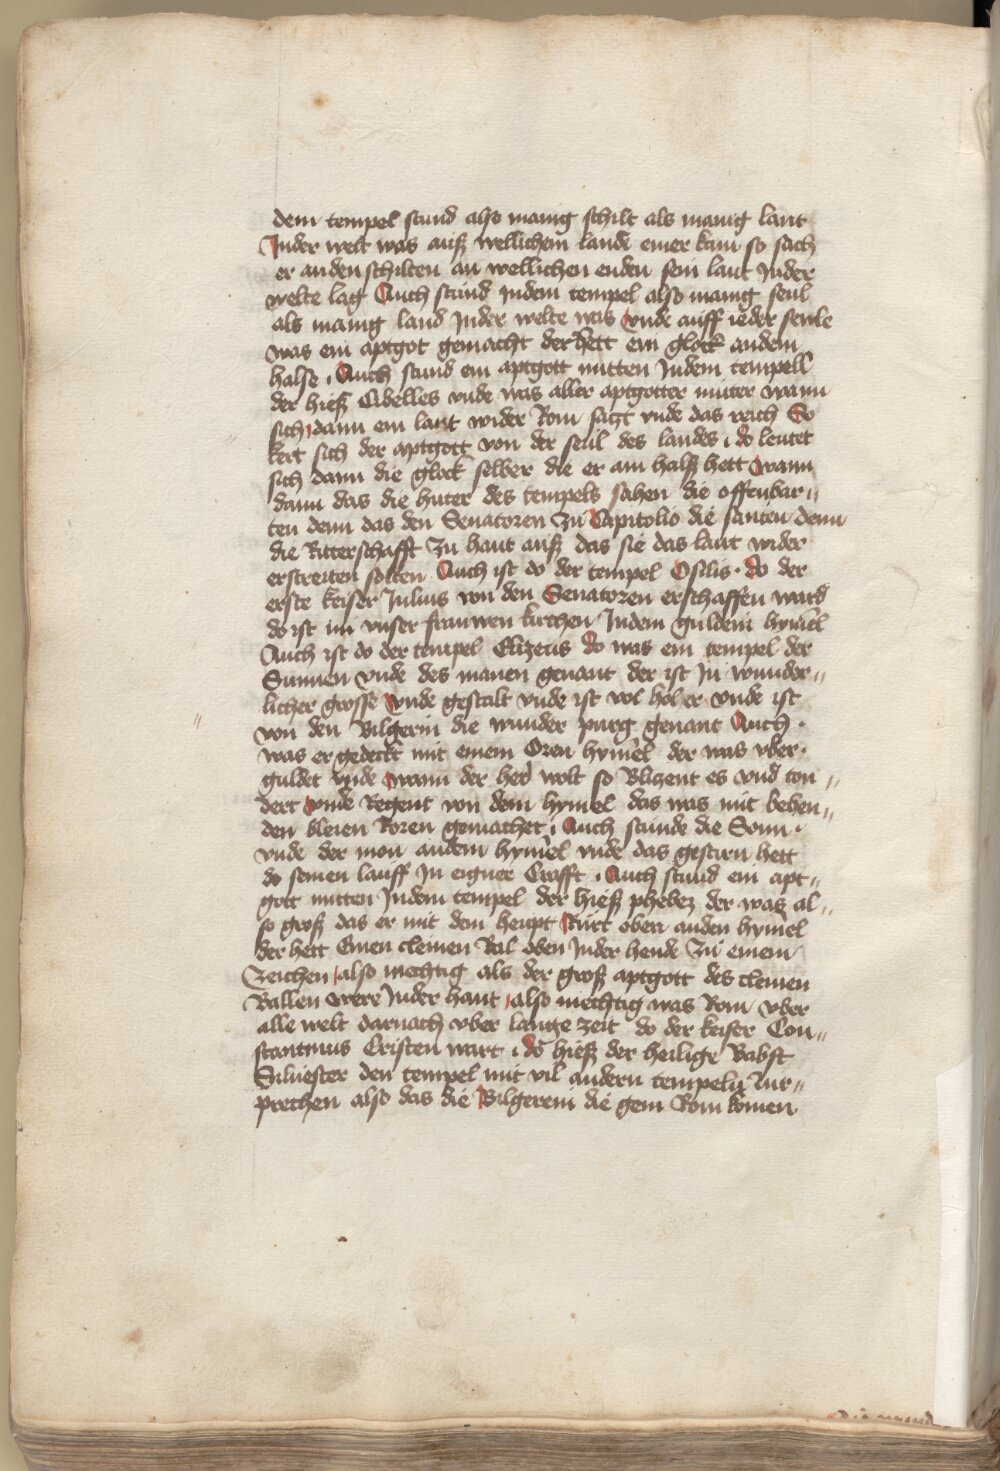 dem tempel stund also manig schilt als manig lant
Inder welt was auß wellichem lande einer kam so sach
er anden schilten an wellichen enden sein lant Inder
welte lag Auch stund Indem tempel also manig seul
als manig land Inder welte was vnde auff ieder seule
was ein aptgot gemacht der hett ein glock andem
halse Auch stund ein aptgott mitten Indem tempell
der hieß Cibelles vnde was aller aptgotter muter wann
sich dann ein lant wider Rom satzt vnde das reich So
kert sich der aptgott von der seul des landes do leutet
sich dann die glock selber die er am halß hett wann
dann das die huter des tempels sahen die offenbar„
ten denn das den Senatoren Zu Capitolio die santen denn
die Ritterschafft Zu hant auß das sie das lant wider
erstreiten solten Auch ist do der tempel Osilis · do der
erste keiser Julius von den Senatoren erschaffen ward
do ist nu vnser frauwen kirchen Indem guldein hymel
Auch ist do der tempel Elizeus do was ein tempel der
Sunnen vnde des manen genant der ist In wunder„
licher grosse vnde gestalt vnde ist vol holer vnde ist
von den Bilgerin die wunder purg genant Auch ·
was er gedeckt mit einem Oren hymel der was vber·
guldet vnde wann der her wolt so Blizent es vnd ton„
dert vnde Regent von dem hymel das was mit beben„
den bleien Roren gemachet Auch stunde die Sonn ·
vnde der mon andem hymel vnde das gestirn hett
do seinen lauff In eigner Crafft Auch stund ein apt„
gott mitten Indem tempel der hieß phebez der was al„
so groß das er mit dem heupt Rurt oben anden hymel
der hett Einen cleinen Bal oben Inder hende Zu einem
Zeichen also mechtig als der groß aptgott des cleinen
Ballen were Inder hant also mechtig was Rom vber
alle welt darnach vber lange zeit do der keiser Con„
stantinus Cristen wart do hieß der heilige Babst
Siluester den tempel mit vil andern tempeln Zur„
prechen also das die Bilgerein die gein Rom komen